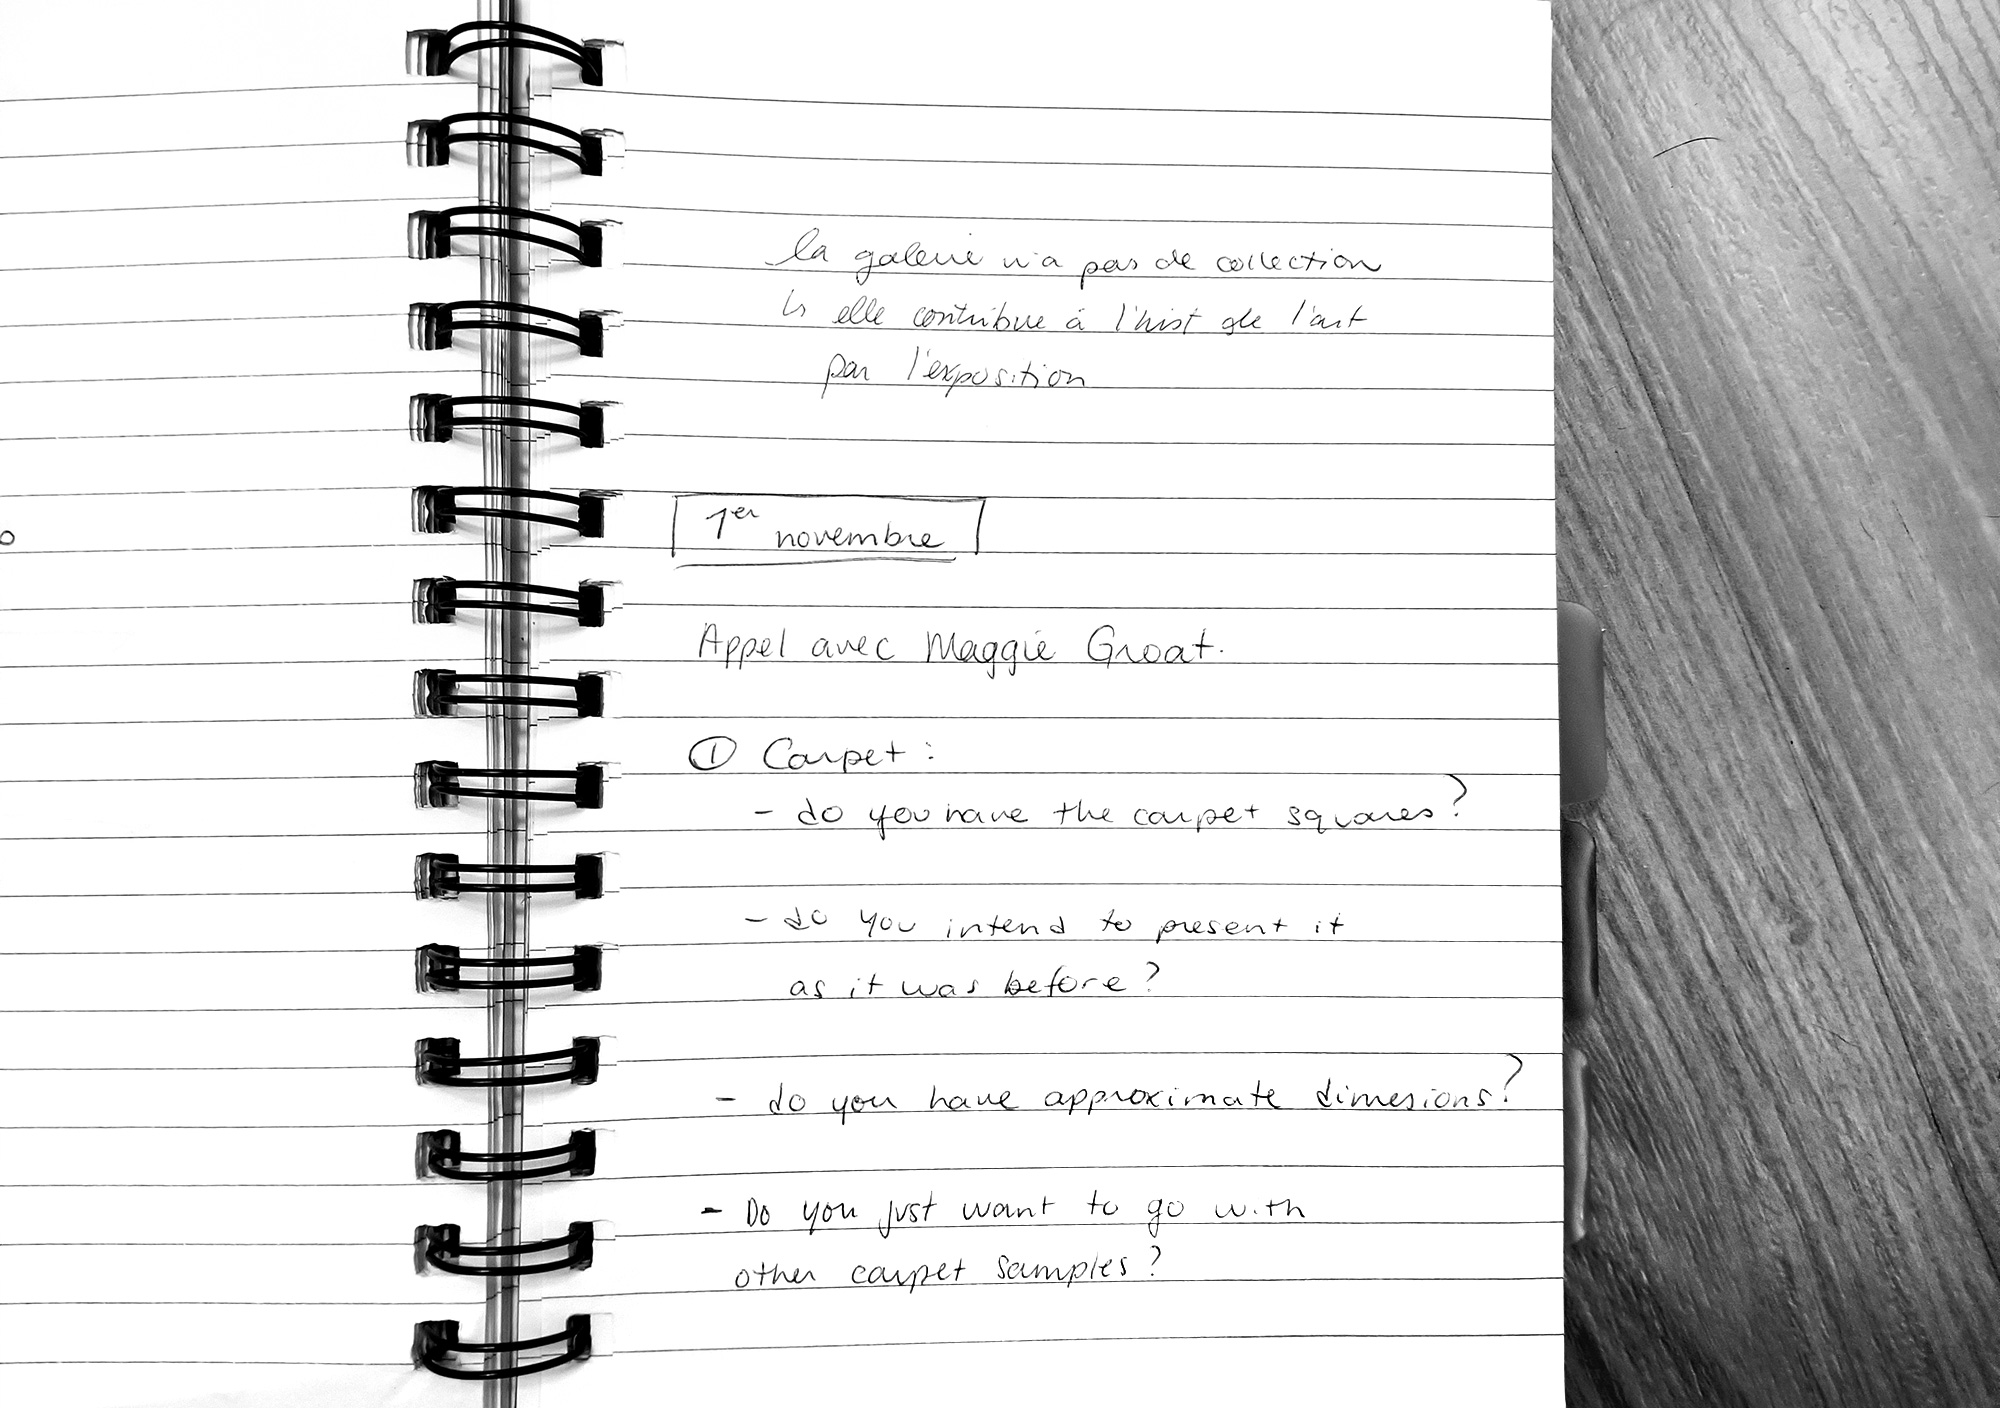 la galerie n'a pas de collection
↳ elle contribue à l'hist de l'art
par l'exposition
1er novembre
Appel avec Maggie Groat.
① Carpet :
- do you have the carpet squares?
- do you intend to present it
as it was before?
- do you have approximate dimesions?
- Do you just want to go with
other carpet samples?